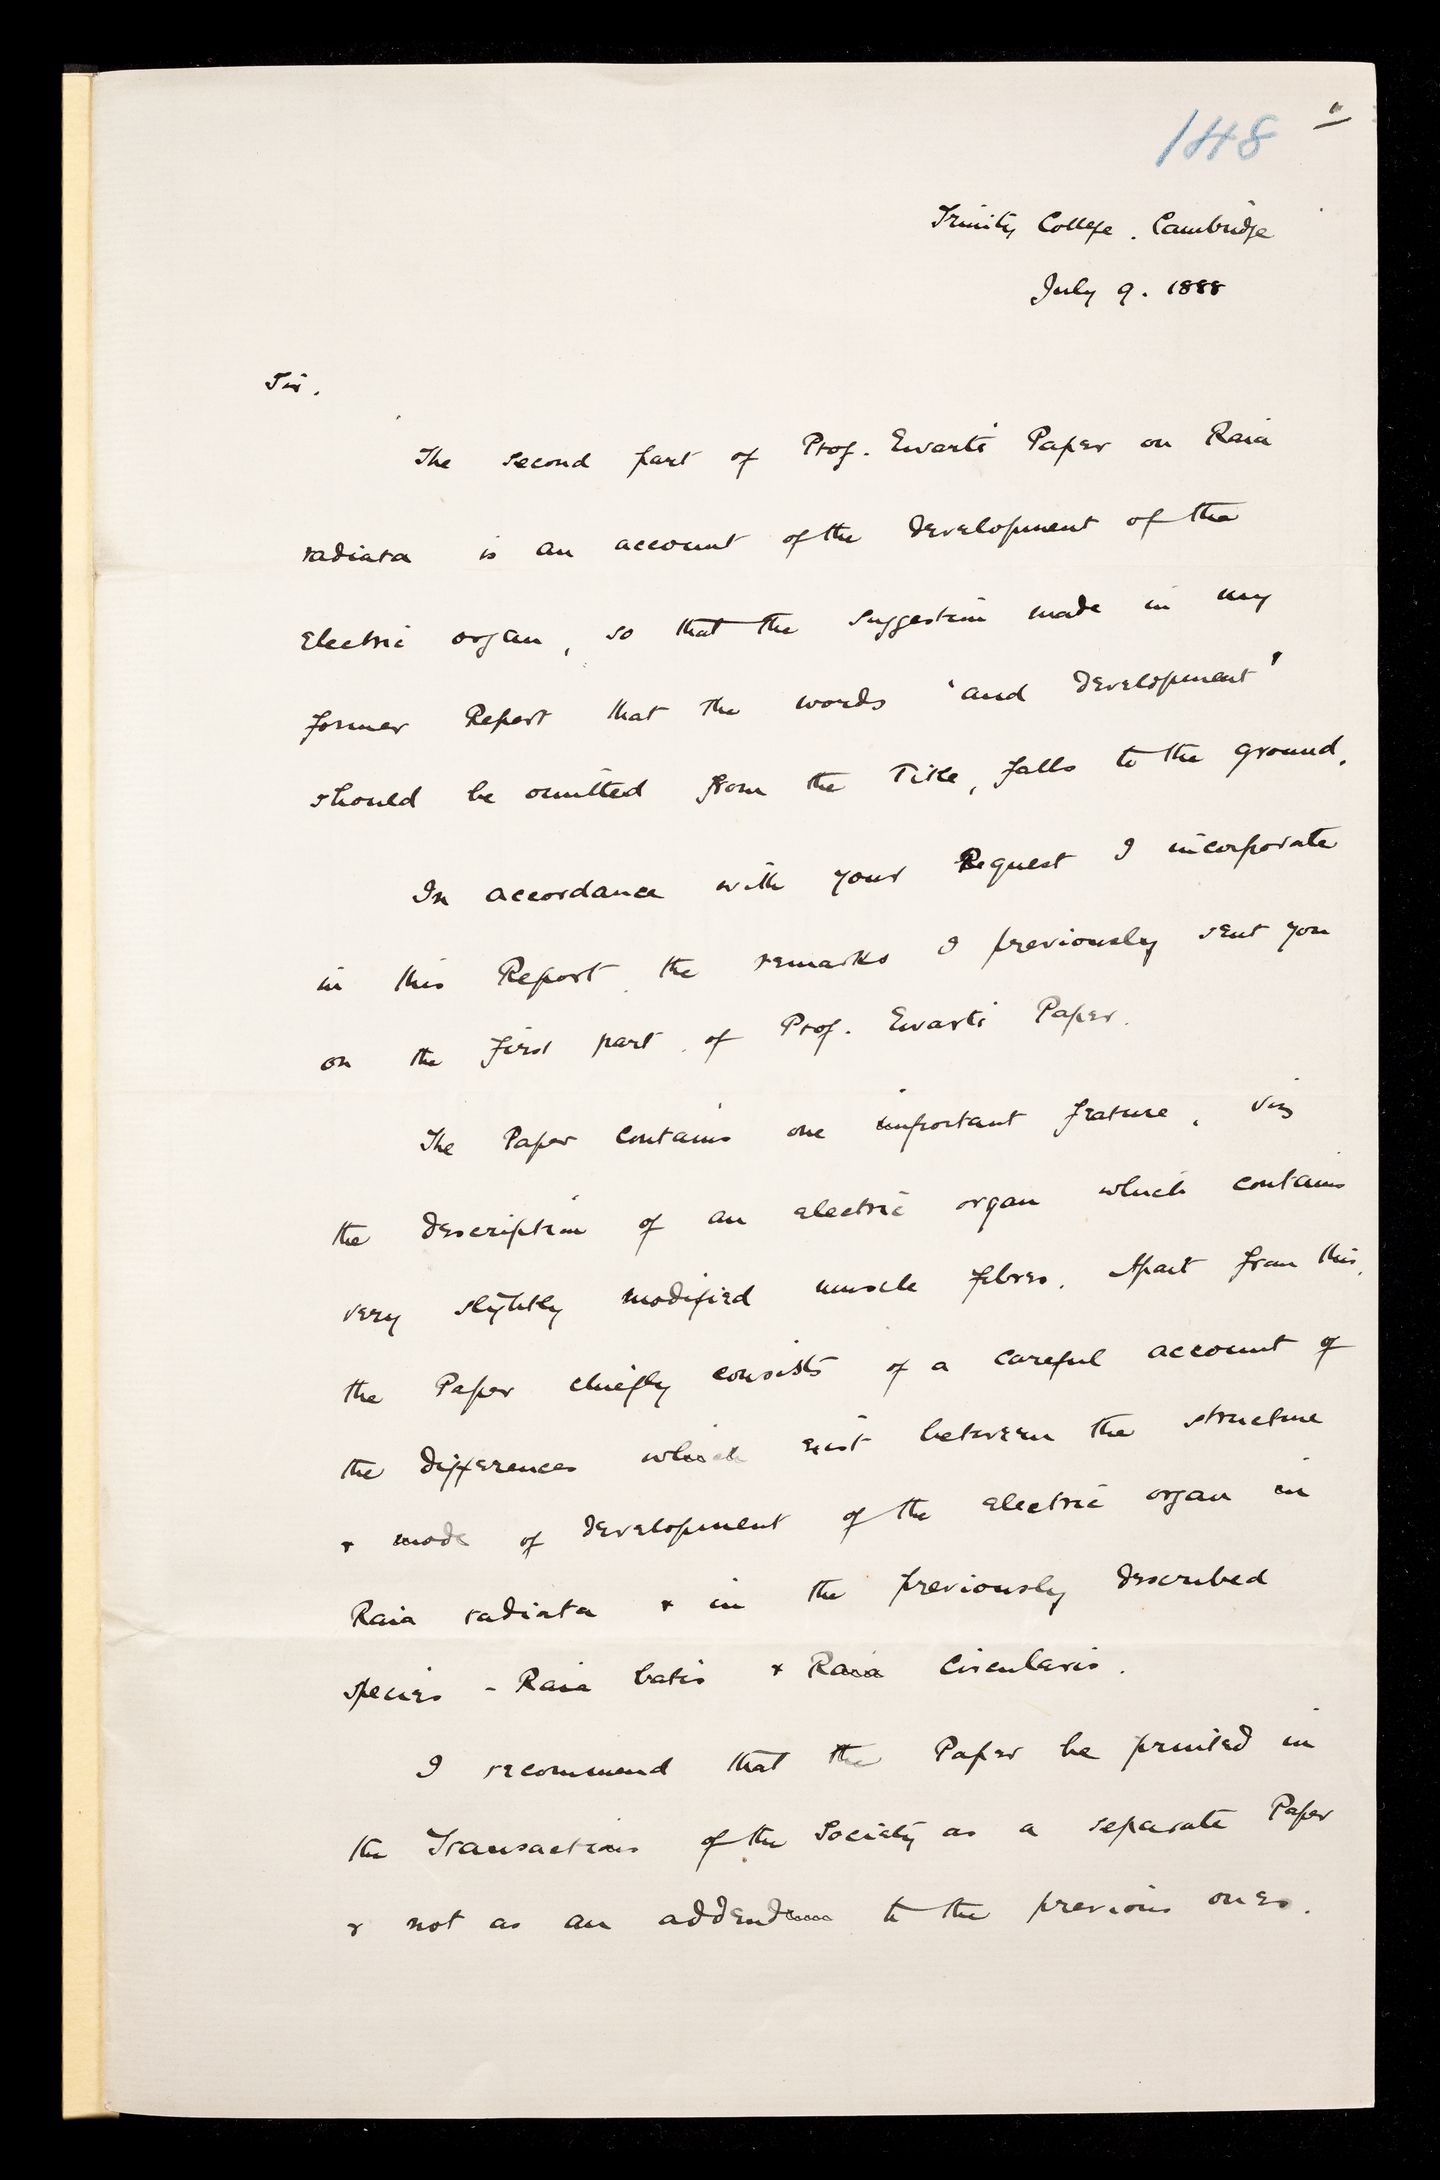 148
Trinity College. Cambridge
July 9. 1888
Sir.
The second part of Prof. Ewart's Paper on Raia
radiata is an account of the development of the
electric organ, so that the suggestion made in my
former Report that the words 'and development'
should be omitted from the Title, falls to the ground.
In accordance with your Request I incorporate
in this Report the remarks I previously sent you
on the first part of Prof. Ewart's Paper.
The Paper contains one important feature, viz
the description of an electric organ which contains
very slightly modified muscle fibres. Apart from this,
the Paper chiefly consists of a careful account of
the differences which exist between the structure
& mode of development of the electric organ in
Raia radiata & in the previously described
species - Raia batis & Raia circularis.
I recommend that the Paper be printed in
the Transactions of the Society as a separate Paper
& not as an addendum to the previous ones.